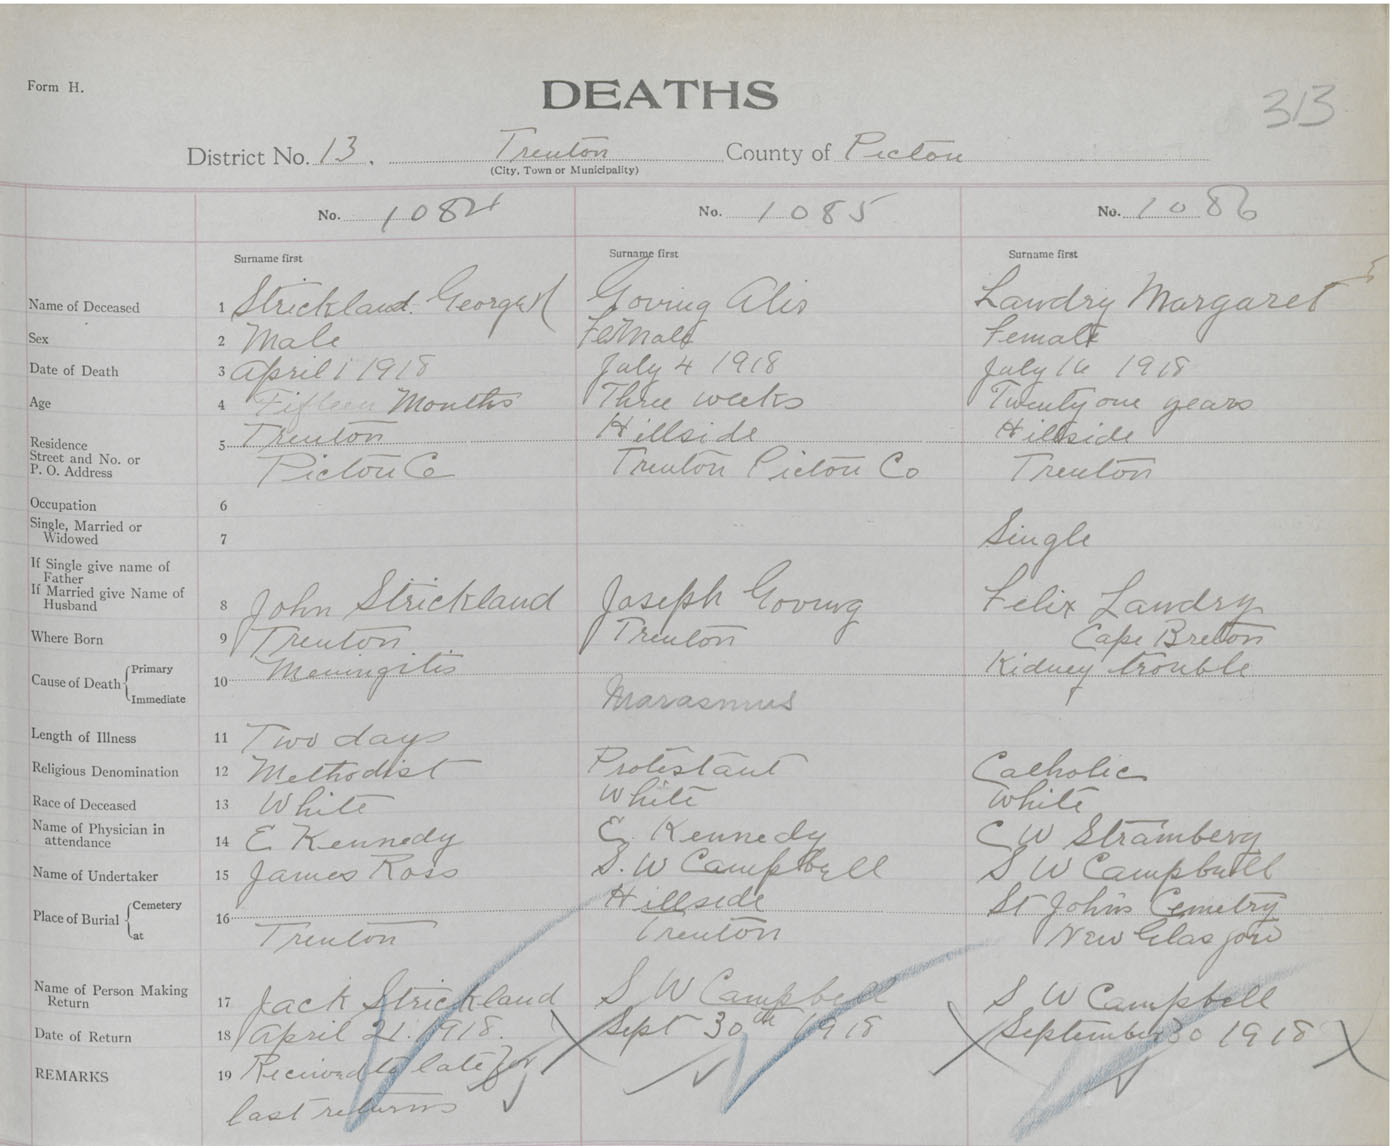 Form H.
DEATHS
313
District No. 13. Trenton County of Picton
(City, Town or Municipality)
No. 1084 No. 1085 No. 1086
Surname first Surname first Surname first
Name of Deceased 1 Strickland George H Goving Alis Landry Margaret
Sex 2 Male Female Female
Date of Death 3 April 1 1918 July 4 1918 July 16 1918
Age 4 Fifteen Months Three weeks Twenty one years
Residence 5 Trenton Hillside Hillside
Street and No. or
P. O. Address Picton Co Trenton Picton Co Trenton
Occupation 6
Single, Married or
Widowed 7 Single
If Single give name of
Father
If Married give Name of
Husband 8 John Strickland Joseph Goving Felix Landry
Where Born 9 Trenton Trenton Cape Breton
Cause of Death Primary 10 Meningitis Kidney trouble
Immediate Marasmus
Length of Illness 11 Two days
Religious Denomination 12 Methodist Protestant Catholic
Race of Deceased 13 White White White
Name of Physician in
attendance 14 E Kennedy E. Kennedy C W Stramberg
Name of Undertaker 15 James Ross S. W Campbell S W Campbell
Place of Burial Cemetery 16 Hillside St John's Cemetry
at Trenton Trenton New Glasgow
Name of Person Making
Return 17 Jack Strickland S W Campbell S W Campbell
Date of Return 18 April 21. 1918. Sept 30th 1918 September 30 1918
REMARKS 19 Recieved to late for
last returns